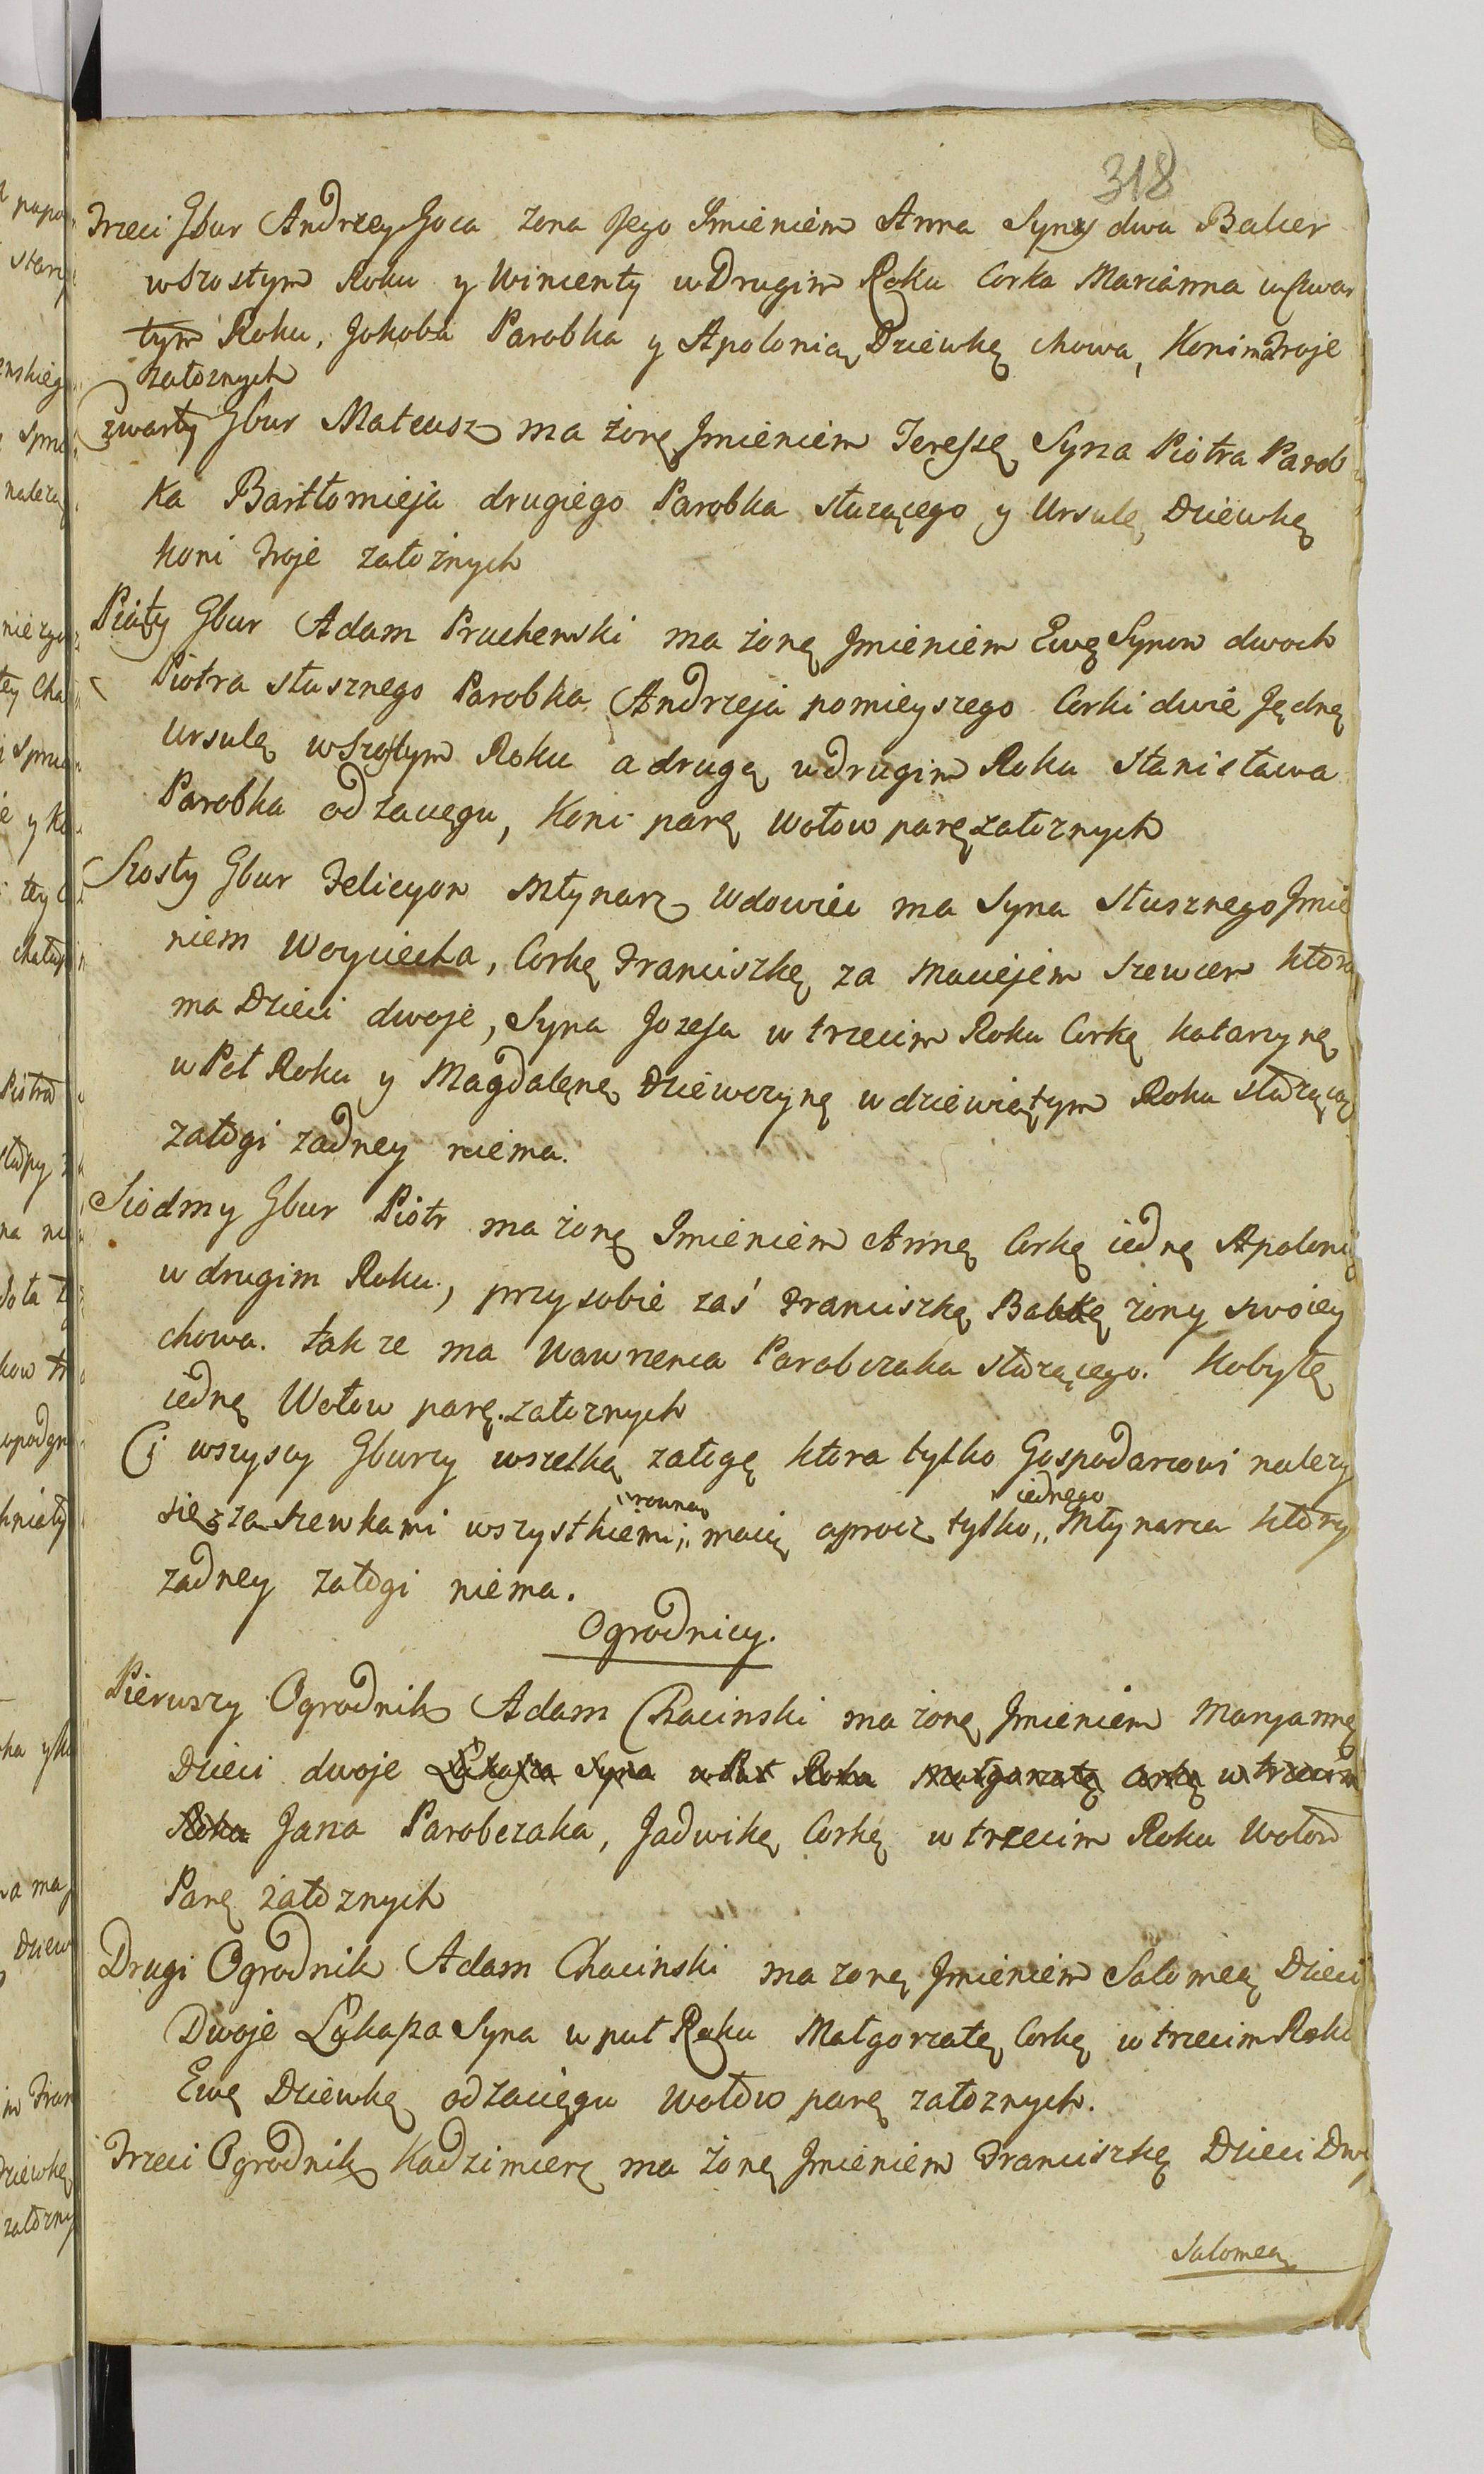 318
Trzeci Gbur Andrzey Goca zona Jego Jmieniem Anna Syny dwa Balcer
w Szostym Roku y Wincenty w Drugim Roku Corka Marianna w Czwar
tym Roku, Jokoba Parobka y Apolonią Dziewkę chowa, Koni troje
załoznych
Czwarty Gbur Mateusz ma żonę Jmieniem Teressę Syna Piotra Parob
ka Bartłomieja drugiego Parobka słuzącego y Ursulę Dziewkę
koni troje załoznych
Piąty Gbur Adam Pruchenski ma żonę Jmieniem Ewę Synow dwoch
Piotra słusznego Parobka Andrzeja pomieyszego Corki dwie Jędnę
Ursulę w Szostym Roku a drugę w drugim Roku Stanisława
Parobka od zacięgu, Koni parę wołow parę załoznych
Szosty Gbur Felicyon Młynarz Wdowiec ma Syna Słusznego Jmie
niem Woyciecha, Corkę Franciszkę za Maciejem Szewcem ktora
ma Dzieci dwoje, Syna Jozefa w trzecim Roku Corkę Katarzynę
w Poł Roku y Magdalenę Dziewczynę w dziewiętym Roku słuzącą
załogi zadney niema.
Siodmy Gbur Piotr ma żonę Jmieniem Annę Corkę iednę Apolonię
w drugim Roku, przy sobie zaś Franciszkę Babkę żony swoiey
chowa. tak ze ma Wawrzenca Parobczaka słuzącego. Kobyłę
iednę Wołow parę załoznych
Ci wszyscy Gburzy wszelką załogę ktora tylko Gospodarzowi nalezy
się z zasiewkami wszystkiemi,, maią oprocz tylko,, Młynarza ktory
rowna
iednego
zadney załogi niema.
Ogrodnicy.
Pierwszy Ogrodnik Adam Chacinski ma żonę Jmieniem Maryannę
Dzieci dwoje Łukasza Syna w Puł Roku Małgorzatę Corkę w trzecim
Roku Jana Parobczaka, Jadwikę Corkę w trzecim Roku Wołow
Parę załoznych
Drugi Ogrodnik Adam Chacinski ma zonę Jmieniem Salomeą Dzieci
Dwoje Łukasza Syna w puł Roku Małgorzatę Corkę w trzecim Roku
Ewę Dziewkę od zaciągu wołow parę załoznych.
Trzeci Ogrodnik Kadzimierz ma żonę Jmieniem Franciszkę Dzieci Dwo
Salomeą